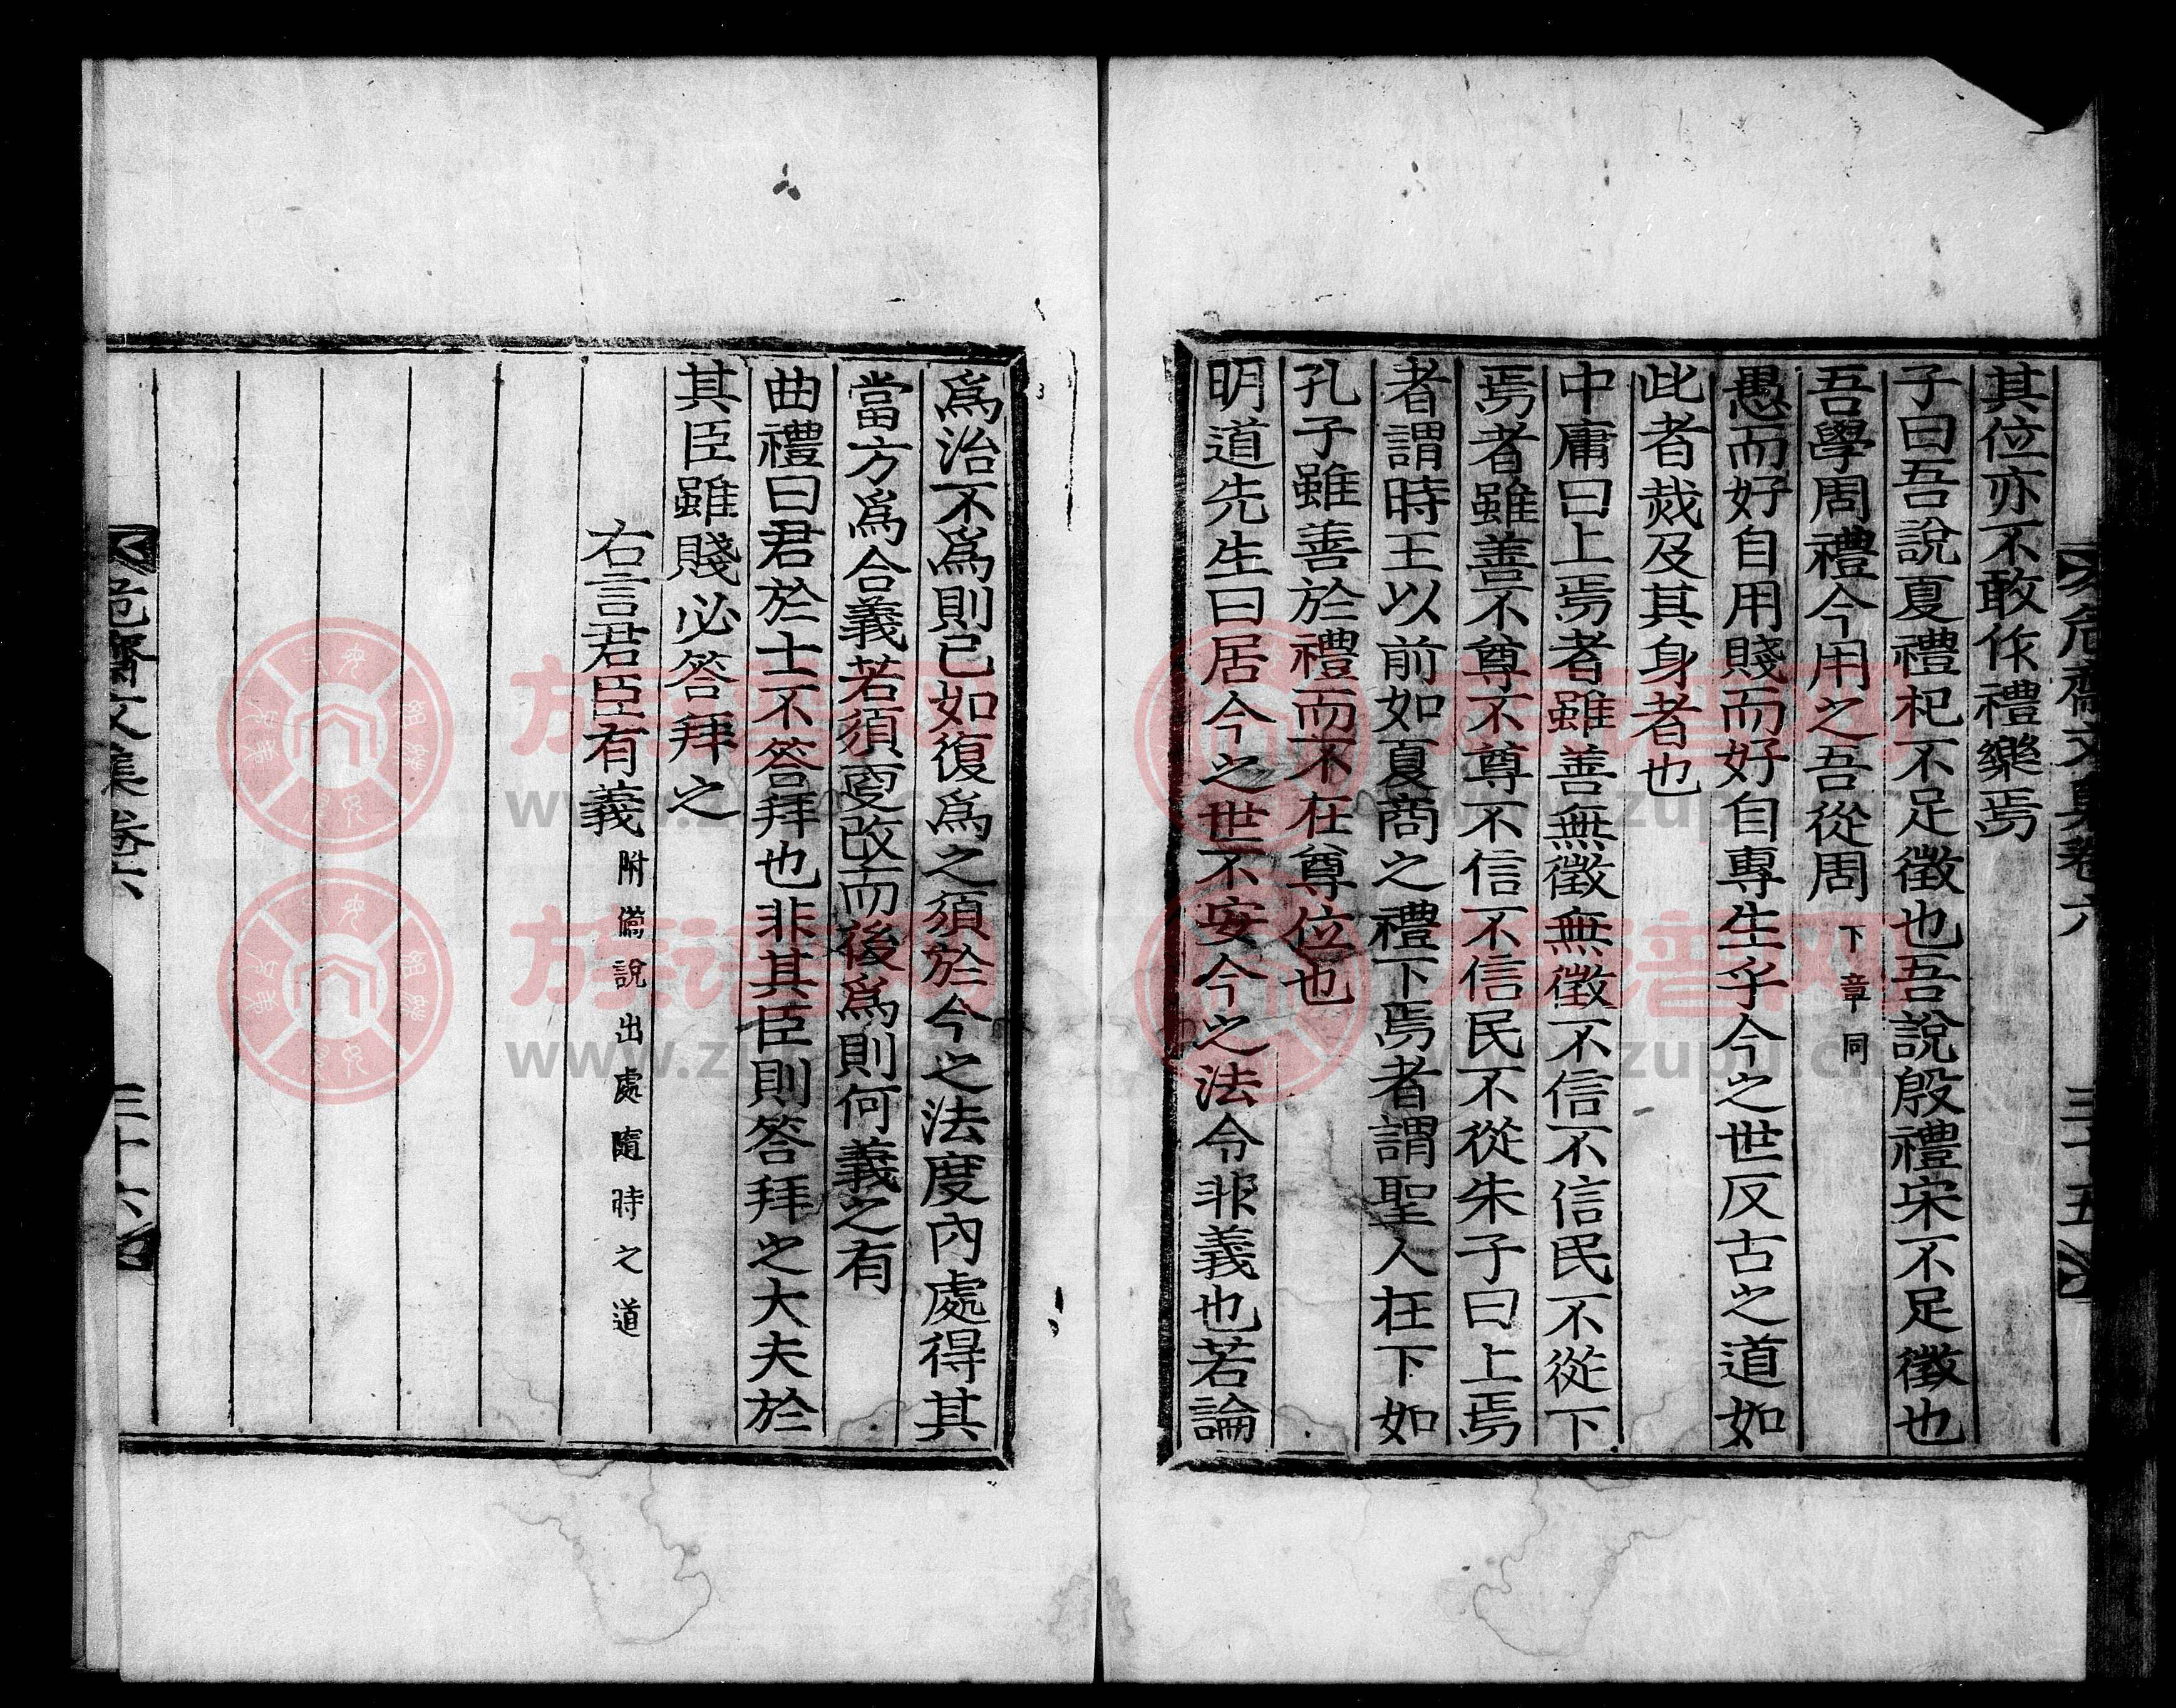 危齋文集卷六 三十五
其位亦不敢作禮樂焉
子曰吾說夏禮杞不足徵也吾說殷禮宋不足徵也
吾學周禮今用之吾從周下章同
愚而好自用賤而好自專生乎今之世反古之道如
此者烖及其身者也
中庸曰上焉者雖善無徵無徵不信不信民不從下
焉者雖善不尊不尊不信不信民不從朱子曰上焉
者謂時王以前如夏商之禮下焉者謂聖人在下如
孔子雖善於禮而不在尊位也
明道先生曰居今之世不安今之法令非義也若論
爲治不爲則已如復爲之須於今之法度內處得其
當方爲合義若須更改而後爲則何義之有
曲禮曰君於士不答拜也非其臣則答拜之大夫於
其臣雖賤必答拜之
右言君臣有義附儒說出處隨時之道
危齋文集卷六 三十六
族谱网
www.zupu.cn
族谱网
www.zupu.cn